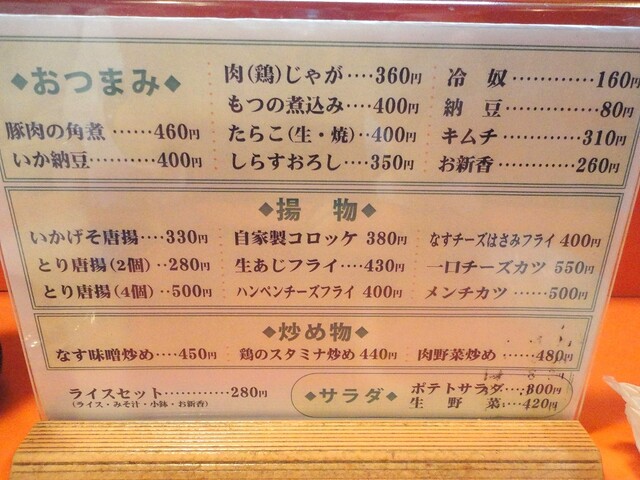 ◆おつまみ◆
豚肉の角煮……460円
いか納豆………400円
肉(鶏)じゃが‥‥360円
もつの煮込み‥‥400円
たらこ(生・焼)‥400円
しらすおろし‥‥350円
冷奴…………160円
納豆…………80円
キムチ…………310円
お新香…………260円
◆揚物◆
いかげそ唐揚‥‥330円
とり唐揚(2個)‥280円
とり唐揚(4個)‥500円
自家製コロッケ 380円
生あじフライ‥‥430円
ハンペンチーズフライ 400円
なすチーズはさみフライ 400円
一口チーズカツ 550円
メンチカツ……500円
◆炒め物◆
なす味噌炒め‥‥450円
鶏のスタミナ炒め 440円
肉野菜炒め……480円
ライスセット…………280円
(ライス・みそ汁・小鉢・お新香)
◆サラダ◆
ポテトサラダ‥‥300円
生野菜‥‥420円